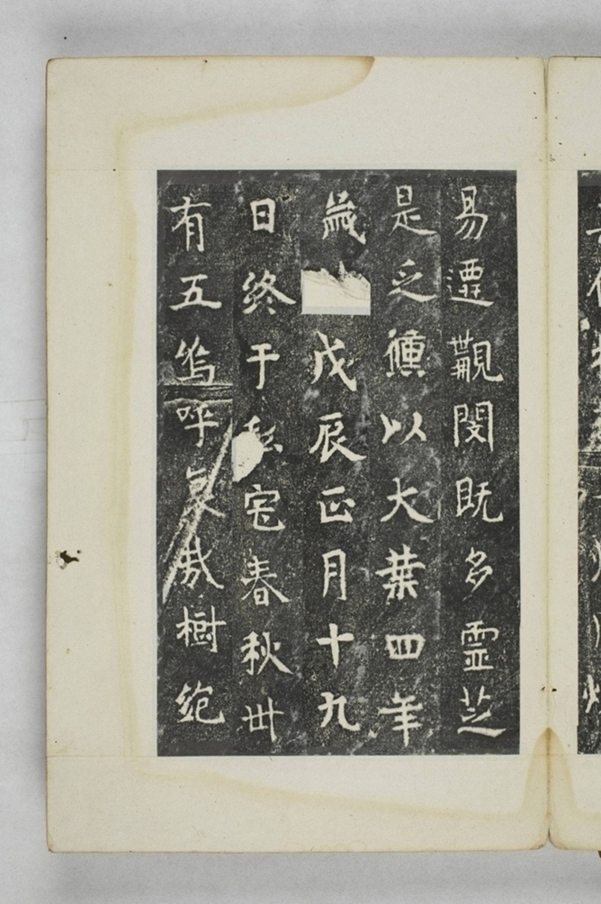 易遷覯閔既多靈芝
是乏以大業四年
歲戊辰正月十九
日終于私宅春秋卌
有五嗚呼哀哉樹